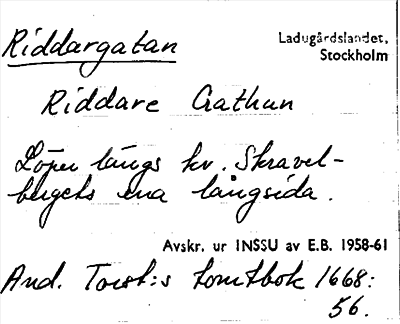 Riddargatan
Ladugårdslandet,
Stockholm
Riddare Gathun
Löper längs kv. Skravel-
bergets ena långsida.
Avskr. ur INSSU av E.B. 1958-61
And. Torst:s tomtbok 1668:
56.